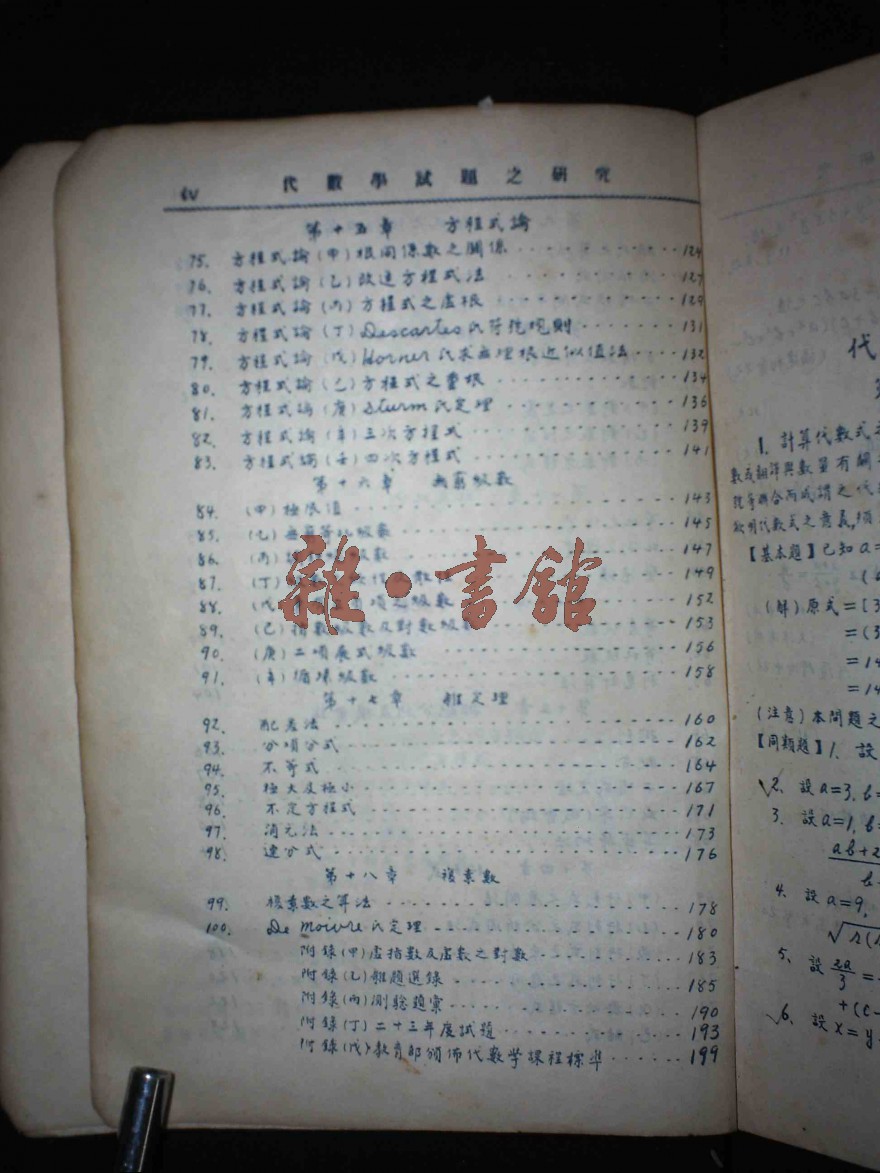 iv 代數學試題之研究
第十五章 方程式論
75. 方程式論(甲)根同係數之關係 124
76. 方程式論(乙)改造方程式法 127
77. 方程式論(丙)方程式之虛根 129
78. 方程式論(丁)Descartes氏符號規則 131
79. 方程式論(戊)Horner氏求無理根近似值法 132
80. 方程式論(己)方程式之重根 134
81. 方程式論(庚)Sturm氏定理 136
82. 方程式論(辛)三次方程式 139
83. 方程式論(壬)四次方程式 141
第十六章 無窮級數
84. (甲)極限值 143
85. (乙)無窮等比級數 145
86. (丙) 級數 147
87. (丁) 149
88. (戊) 項之級數 152
89. (己)指數級數及對數級數 153
90. (庚)二項展式級數 156
91. (辛)循環級數 158
雜·書館
第十七章 雜定理
92. 配差法 160
93. 分項分式 162
94. 不等式 164
95. 極大及極小 167
96. 不定方程式 171
97. 消元法 173
98. 連分式 176
第十八章 複素數
99. 複素數之算法 178
100. De Moivre氏定理 180
附錄(甲)虛指數及虛數之對數 183
附錄(乙)雜題選錄 185
附錄(丙)測驗題彙 190
附錄(丁)二十三年度試題 193
附錄(戊)教育部頒佈代數学課程標準 199
代
1. 計算代數式之
數或翻譯與數量有關
號等聯合而成謂之代
欲明代數式之意義,須
【基本題】已知a=
(解)原式=[3
=(3
=14
=14
(注意)本問題之
【同類題】1. 設
2. 設a=3, b=
3. 設a=1, b=
ab+2
b-
4. 設a=9,
√s(s
5. 設 2a/3 =
+(c-
6. 設x=y